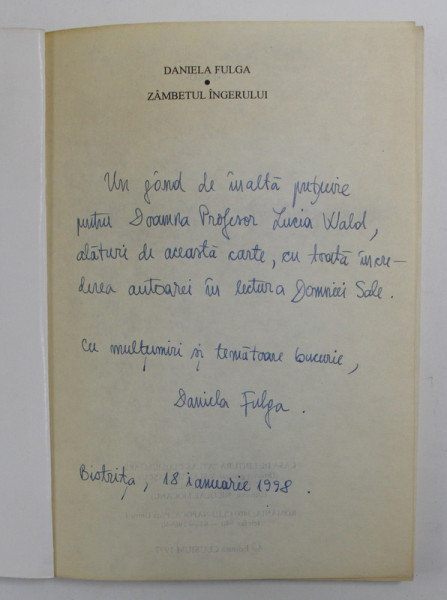 DANIELA FULGA
•
ZÂMBETUL ÎNGERULUI
Un gând de înaltă prețuire
pentru Doamna Profesor Lucia Wald,
alături de această carte, cu toată încre-
derea autoarei în lectura Domniei Sale.
Cu mulțumiri și temătoare bucurie,
Daniela Fulga.
Bistrița, 18 ianuarie 1998.